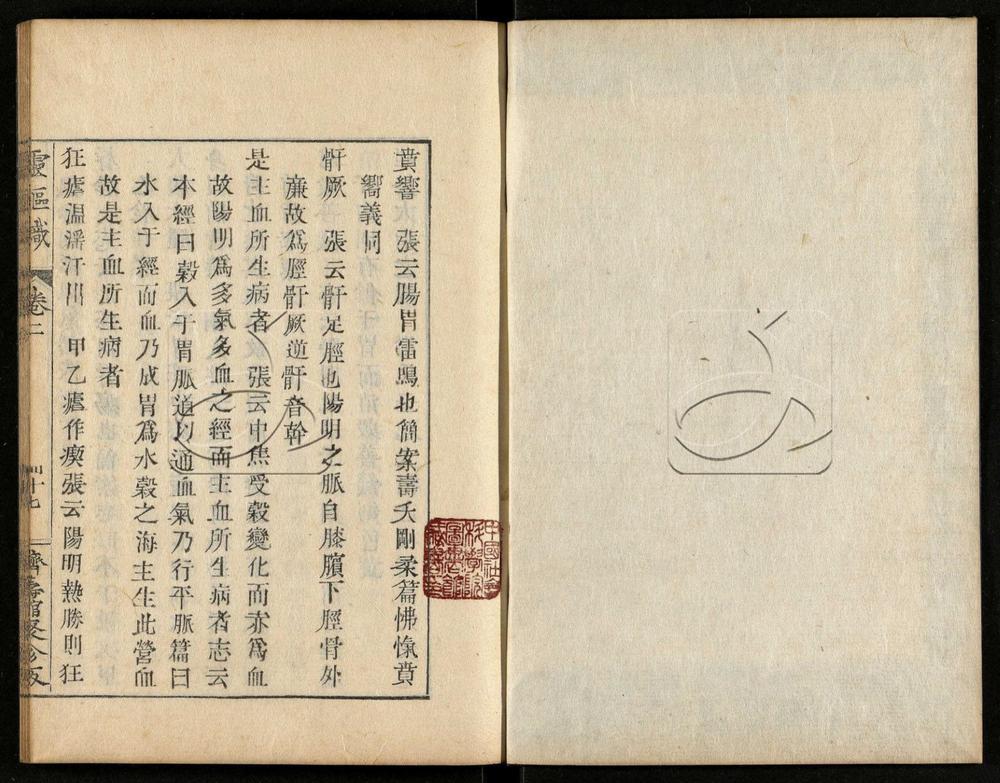 賁響 張云腸胃雷鳴也簡案壽夭剛柔篇怫愾賁
嚮義同
骭厥 張云骭足脛也陽明之脈自膝臏下脛骨外
廉故爲脛骭厥逆骭音幹
是主血所生病者 張云中焦受穀變化而赤爲血
故陽明爲多氣多血之經而主血所生病者志云
本經曰穀入于胃脈道以通血氣乃行平脈篇曰
水入于經而血乃成胃爲水穀之海主生此營血
故是主血所生病者
狂瘧溫淫汗出 甲乙瘧作瘈張云陽明熱勝則狂
靈樞識 卷二 四十七 躋壽館聚珍版